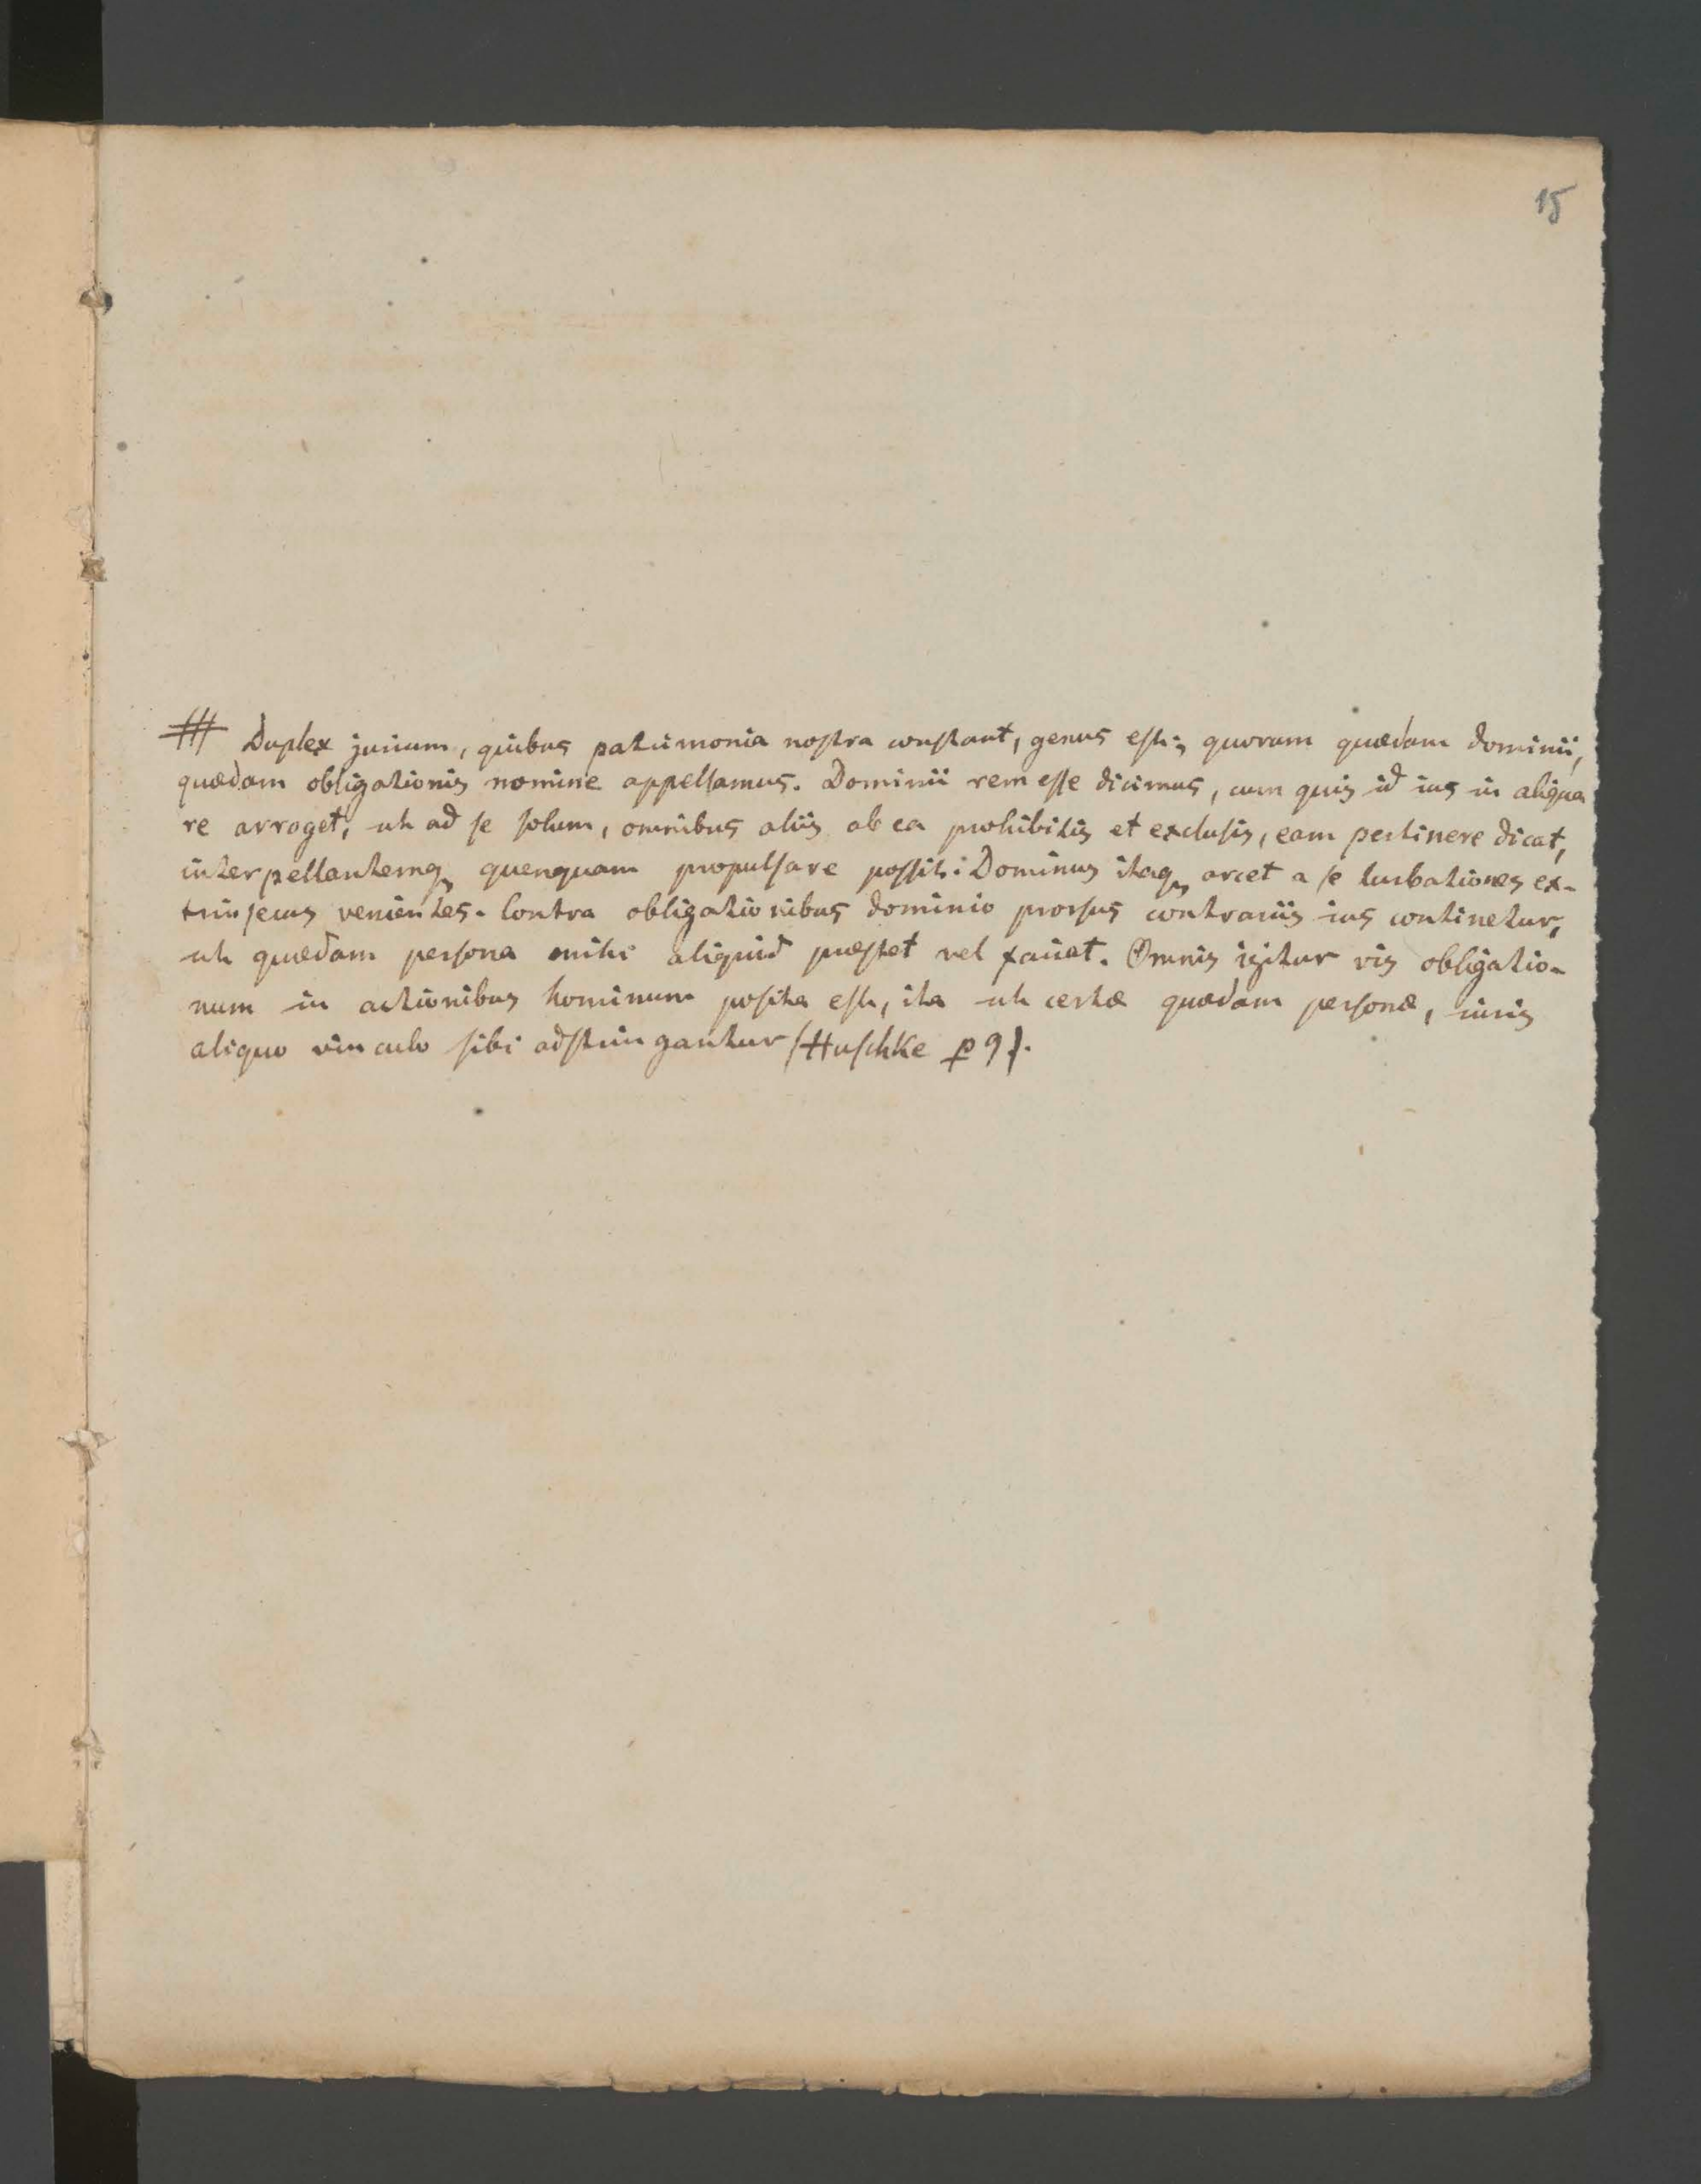 15
Duplex jurium, quibus patrimonia nostra constant, genus est; quorum quædam dominii,
quædam obligationis nomine appellamus. Dominii rem esse dicimus, cum quis id ius in aliqua
re arroget, ut ad se solum, omnibus aliis ab ea prohibitis et exclusis, eam pertinere dicat,
interpellantemq quenquam propulsare possit: Dominus itaq arcet a se turbationes ex-
trinsecus venientes. Contra obligationibus dominio prorsus contrariis ius continetur,
ut quædam persona mihi aliquid præstet vel faciat. Omnis igitur vis obligatio-
num in actionibus hominum posita est, ita ut certæ quædam personæ, iuris
aliquo vinculo sibi adstringantur (Huschke p 9).